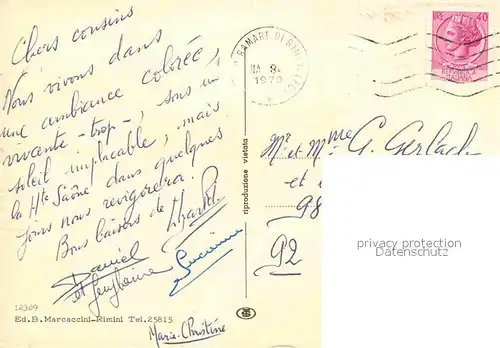 Chers cousins
Nous vivons dans
une ambiance colorée,
vivante - trop -, sous un
soleil implacable, mais
la Hte Saône dans quelques
jours nous revigorera.
Bons baisers de
Daniel
Lucienne
Marie-Christine
12309
Ed. B. Marcaccini-Rimini Tel. 25815
riproduzione vietata
1970
40
Mr et Mme G. Gerlach
et
98
92
privacy protection
Datenschutz